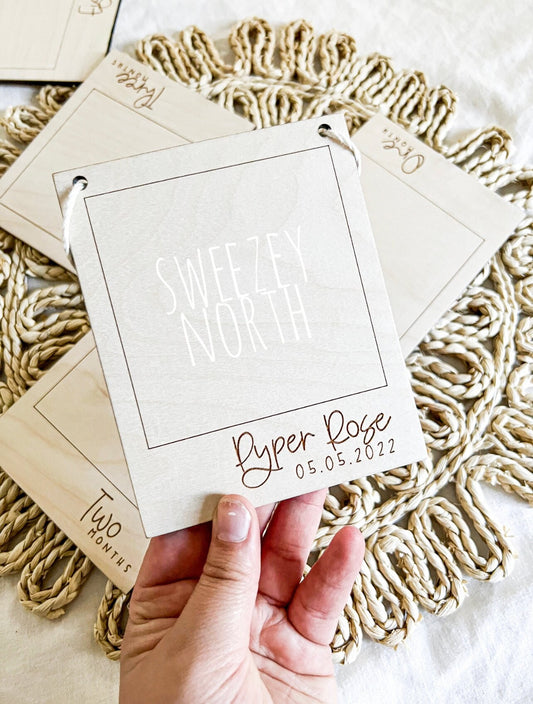 Three
MONTHS
One
MONTH
SWEEZEY
NORTH
Pyper Rose
05.05.2022
Two
MONTHS